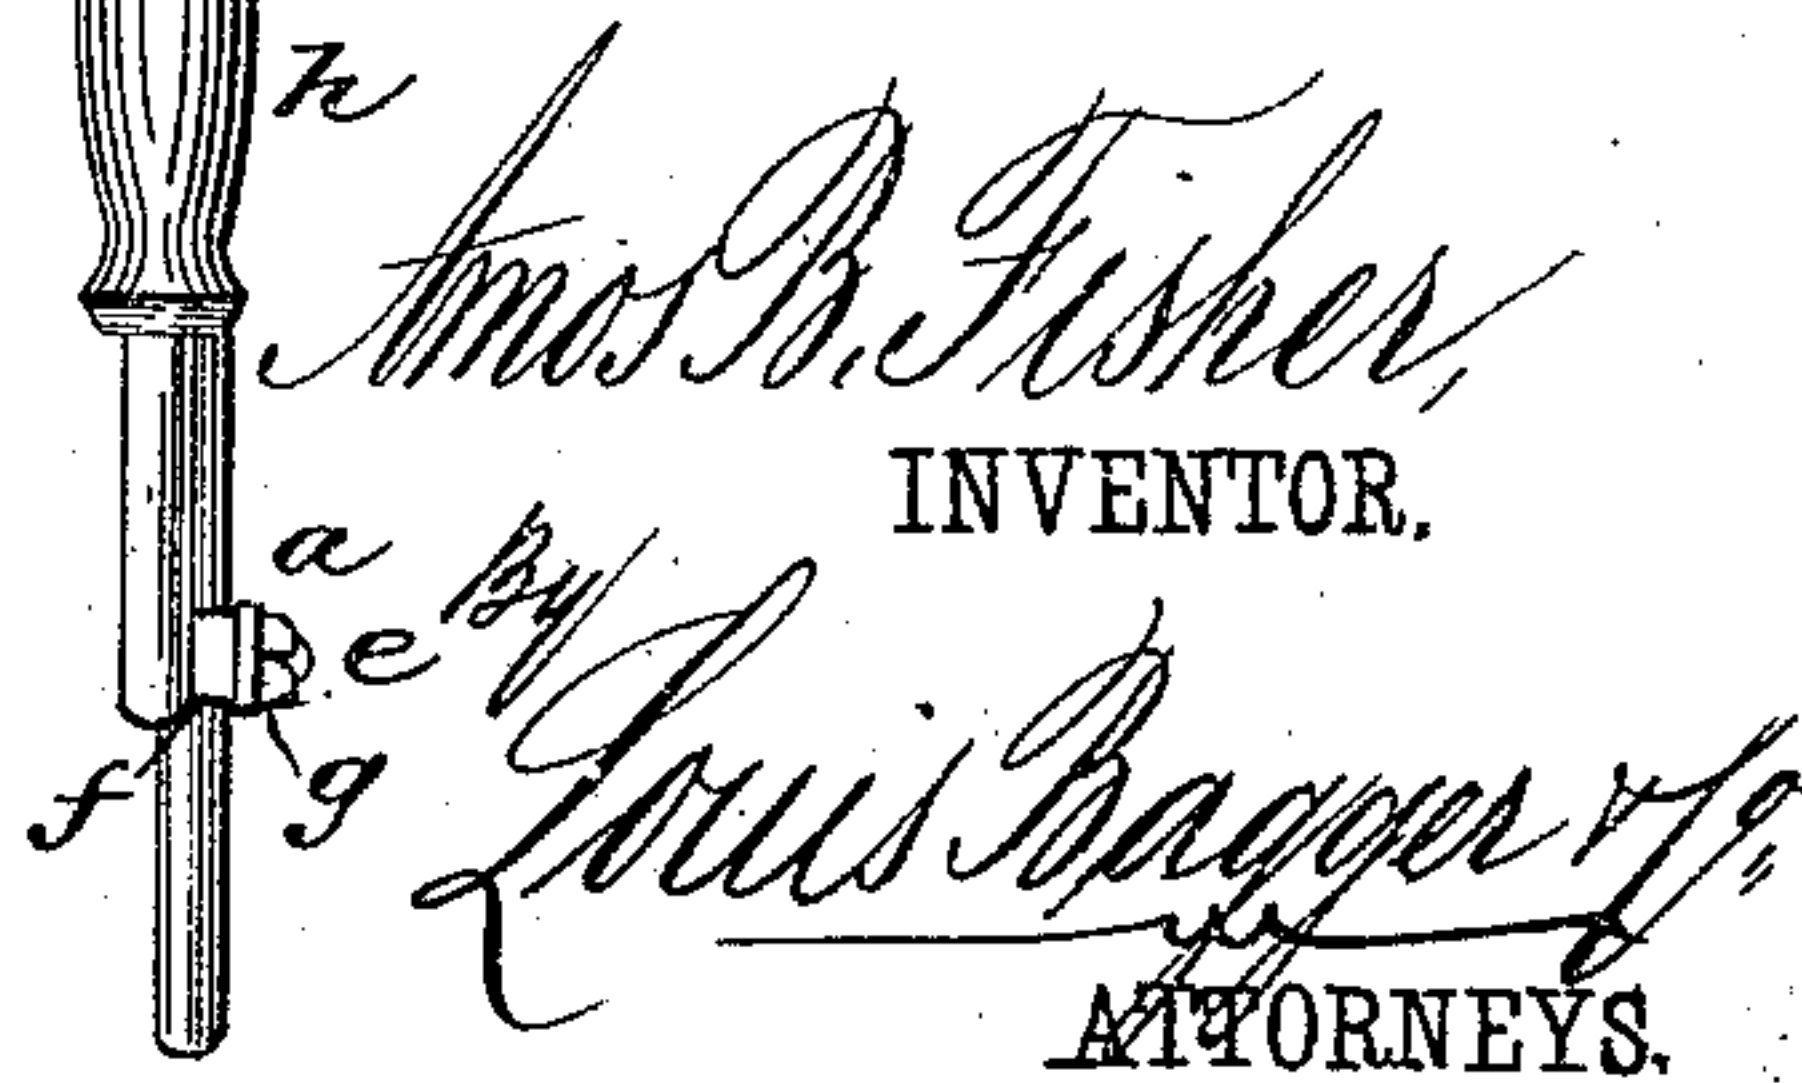 h
Amos B. Fisher,
INVENTOR.
a
By
e
Louis Bagger & Co.
f
g
ATTORNEYS.